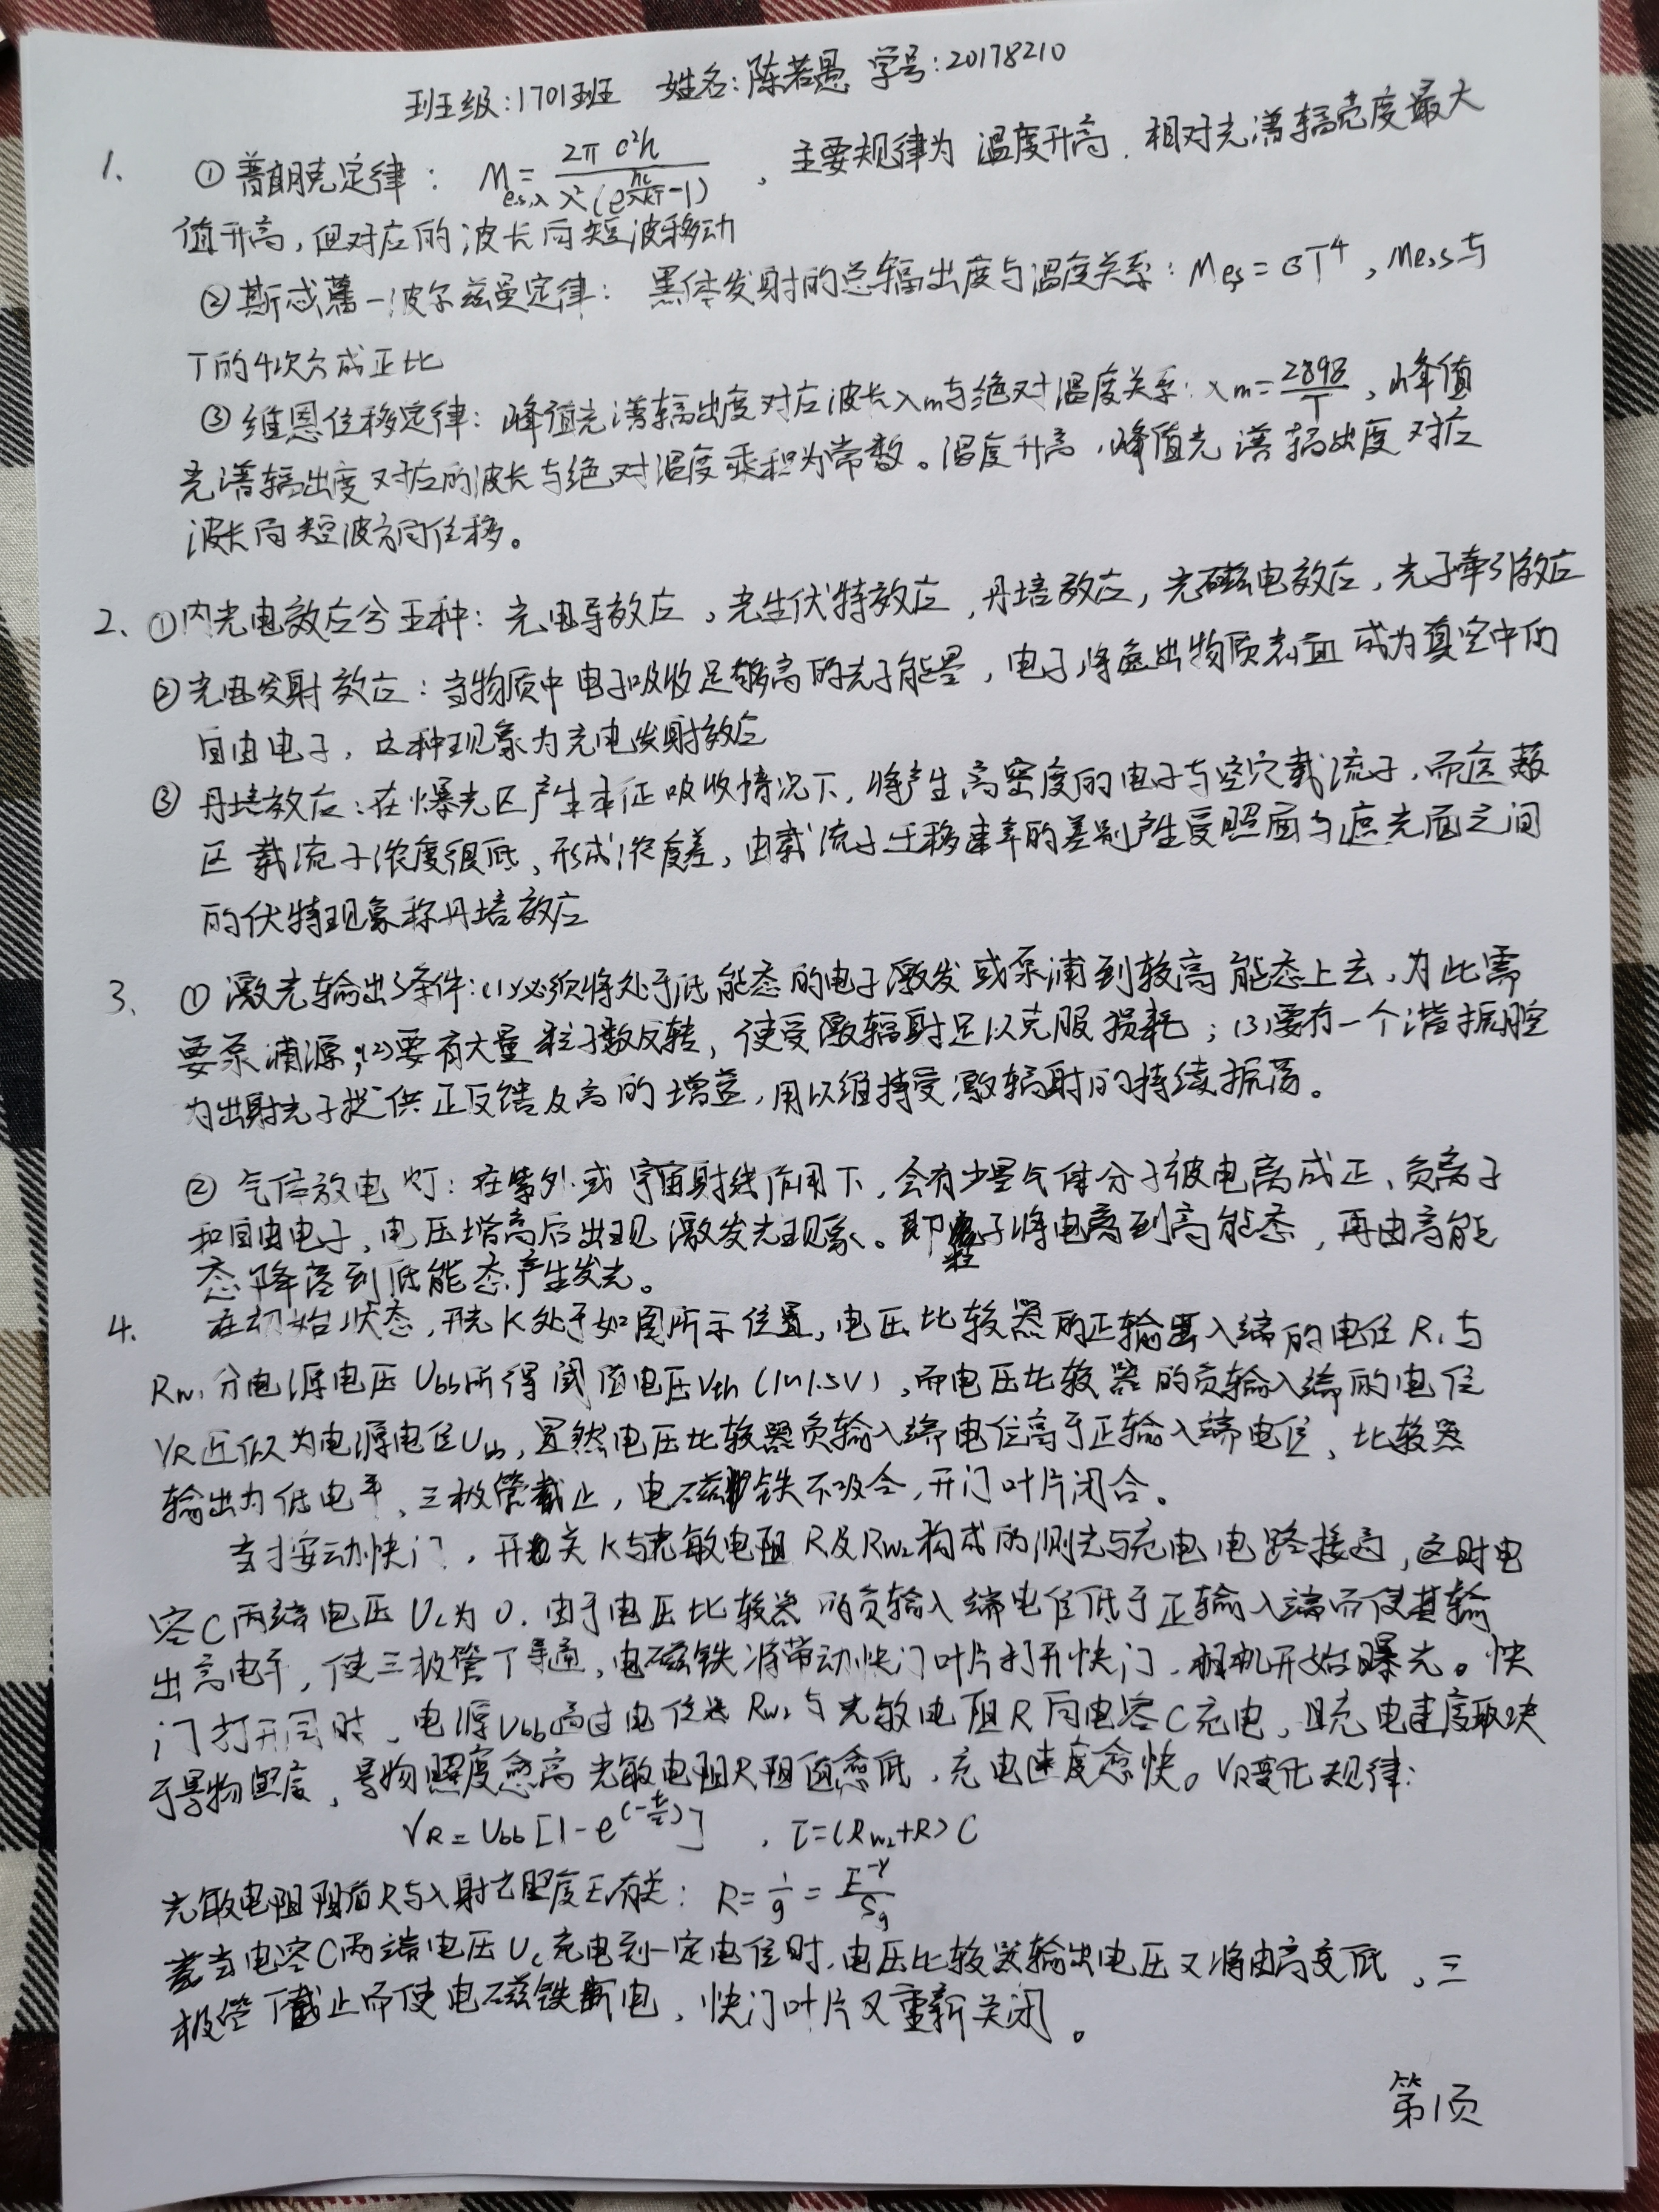 班级:1701班 姓名:陈若愚 学号:20178210
1. ①普朗克定律: Me,s,λ = 2πc²h / λ²(e^(hc/λkT)-1) , 主要规律为 温度升高, 相对光谱辐亮度最大
值升高, 但对应的波长向短波移动
②斯忒藩-波尔兹曼定律: 黑体发射的总辐出度与温度关系: Mes = σT⁴, Me,s与
T的4次方成正比
③维恩位移定律: 峰值光谱辐出度对应波长λm与绝对温度关系: λm = 2898/T, 峰值
光谱辐出度对应的波长与绝对温度乘积为常数。温度升高, 峰值光谱辐出度对应
波长向短波方向位移。
2、①内光电效应分五种: 光电导效应, 光生伏特效应, 丹培效应, 光磁电效应, 光子牵引效应
②光电发射效应: 当物质中电子吸收足够高的光子能量, 电子将逸出物质表面成为真空中的
自由电子, 这种现象为光电发射效应
③丹培效应: 在爆光区产生本征吸收情况下, 将产生高密度的电子与空穴载流子, 而遮蔽
区载流子浓度很低, 形成浓度差, 由载流子迁移速率的差别产生受照面与遮光面之间
的伏特现象称丹培效应
3、①激光输出条件:(1)必须将处于低能态的电子激发或泵浦到较高能态上去, 为此需
要泵浦源;(2)要有大量粒子数反转, 使受激辐射足以克服损耗; (3)要有一个谐振腔
为出射光子提供正反馈及高的增益, 用以维持受激辐射的持续振荡。
②气体放电灯: 在紫外或宇宙射线作用下, 会有少量气体分子被电离成正、负离子
和自由电子, 电压增高后出现激发光现象。即粒子将电离到高能态, 再由高能
态降落到低能态产生发光。
4. 在初始状态, 开光K处于如图所示位置, 电压比较器的正输入端的电位R₁与
Rw₁分电源电压Ubb所得阈值电压Vth(1~1.5V), 而电压比较器的负输入端的电位
VR近似为电源电位Ubb, 显然电压比较器负输入端电位高于正输入端电位, 比较器
输出为低电平, 三极管截止, 电磁铁不吸合, 开门叶片闭合。
当按动快门, 开关K与光敏电阻R及Rw₂构成的测光与充电电路接通, 这时电
容C两端电压Uc为0, 由于电压比较器的负输入端电位低于正输入端而使其输
出高电平, 使三极管T导通, 电磁铁将带动快门叶片打开快门, 相机开始曝光。快
门打开同时, 电源Ubb通过电位器Rw₂与光敏电阻R向电容C充电, 且充电速度取决
于景物照度, 景物照度愈高光敏电阻R阻值愈低, 充电速度愈快。VR变化规律:
VR = Ubb[1-e^(-t/τ)] , τ=(Rw₂+R)C
光敏电阻阻值R与入射光照度E有关: R = 1/g = E^-γ/Sg
当电容C两端电压Uc充电到一定电位时, 电压比较器输出电压又将由高变低, 三
极管T截止而使电磁铁断电, 快门叶片又重新关闭。
第1页